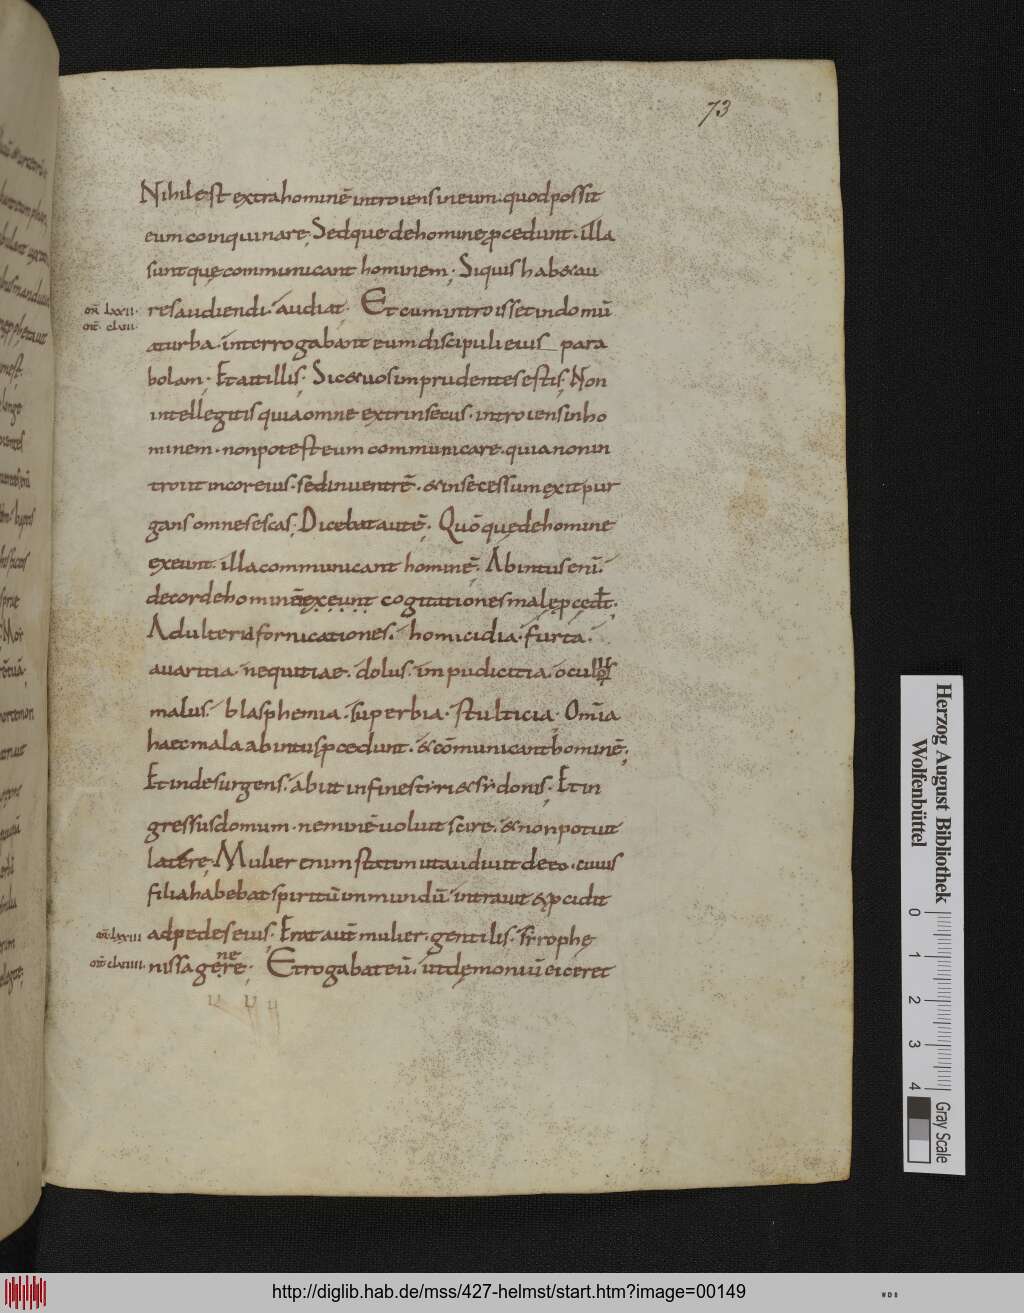 73
Nihil est extra hominē introiens in eum· quod possit
eum coinquinare; Sed que de homine ꝓcedunt· illa
sunt quę communicant hominem; Siquis hab& au
res audiendi· audiat· Et cum introisset in domū
a turba· interrogabant eum discipuli eius para
bolam; Et ait illis; Sic & uos imprudentes estis; Non
intellegitis quia omne extrinsecus· introiens in ho
minem· non potest eum communicare· quia non in
troiit in cor eius· sed in uentrē· & in secessum exit pur
gans omnes escas; Dicebat autē· Quō quę de homine
exeunt· illa communicant hominē; Ab intus enī·
de corde hominū exeunt cogitationes malę ꝓcedt̄·
Adulteria fornicationes· homicidia· furta·
auaritia· nequitiae· dolus· impudicitia· oculus
malus· blasphemia· superbia· stulticia· Om̄ia
haec mala ab intus ꝓcedunt· & cōmunicant hominē;
Et inde surgens· abiit in fines tyri & sydonis; Et in
gressus domum· neminē uoluit scire· & non potuit
latere; Mulier enim statim ut audiuit de eo· cuius
filia habebat spiritū inmundū· intrauit & ꝓcidit
ad pedes eius; Erat aut̄ mulier· gentilis· syrophe
nissa genere· Et rogabat eū· ut dęmoniū eiceret
Herzog August Bibliothek
Wolfenbüttel
0 1 2 3 4
Gray Scale
http://diglib.hab.de/mss/427-helmst/start.htm?image=00149